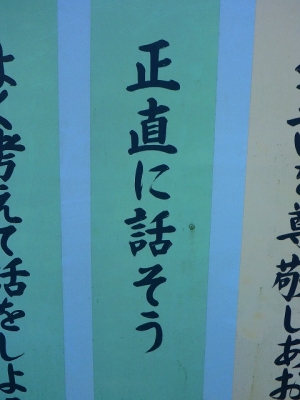 互いを尊敬しあお
正直に話そう
よく考えて話をしよ